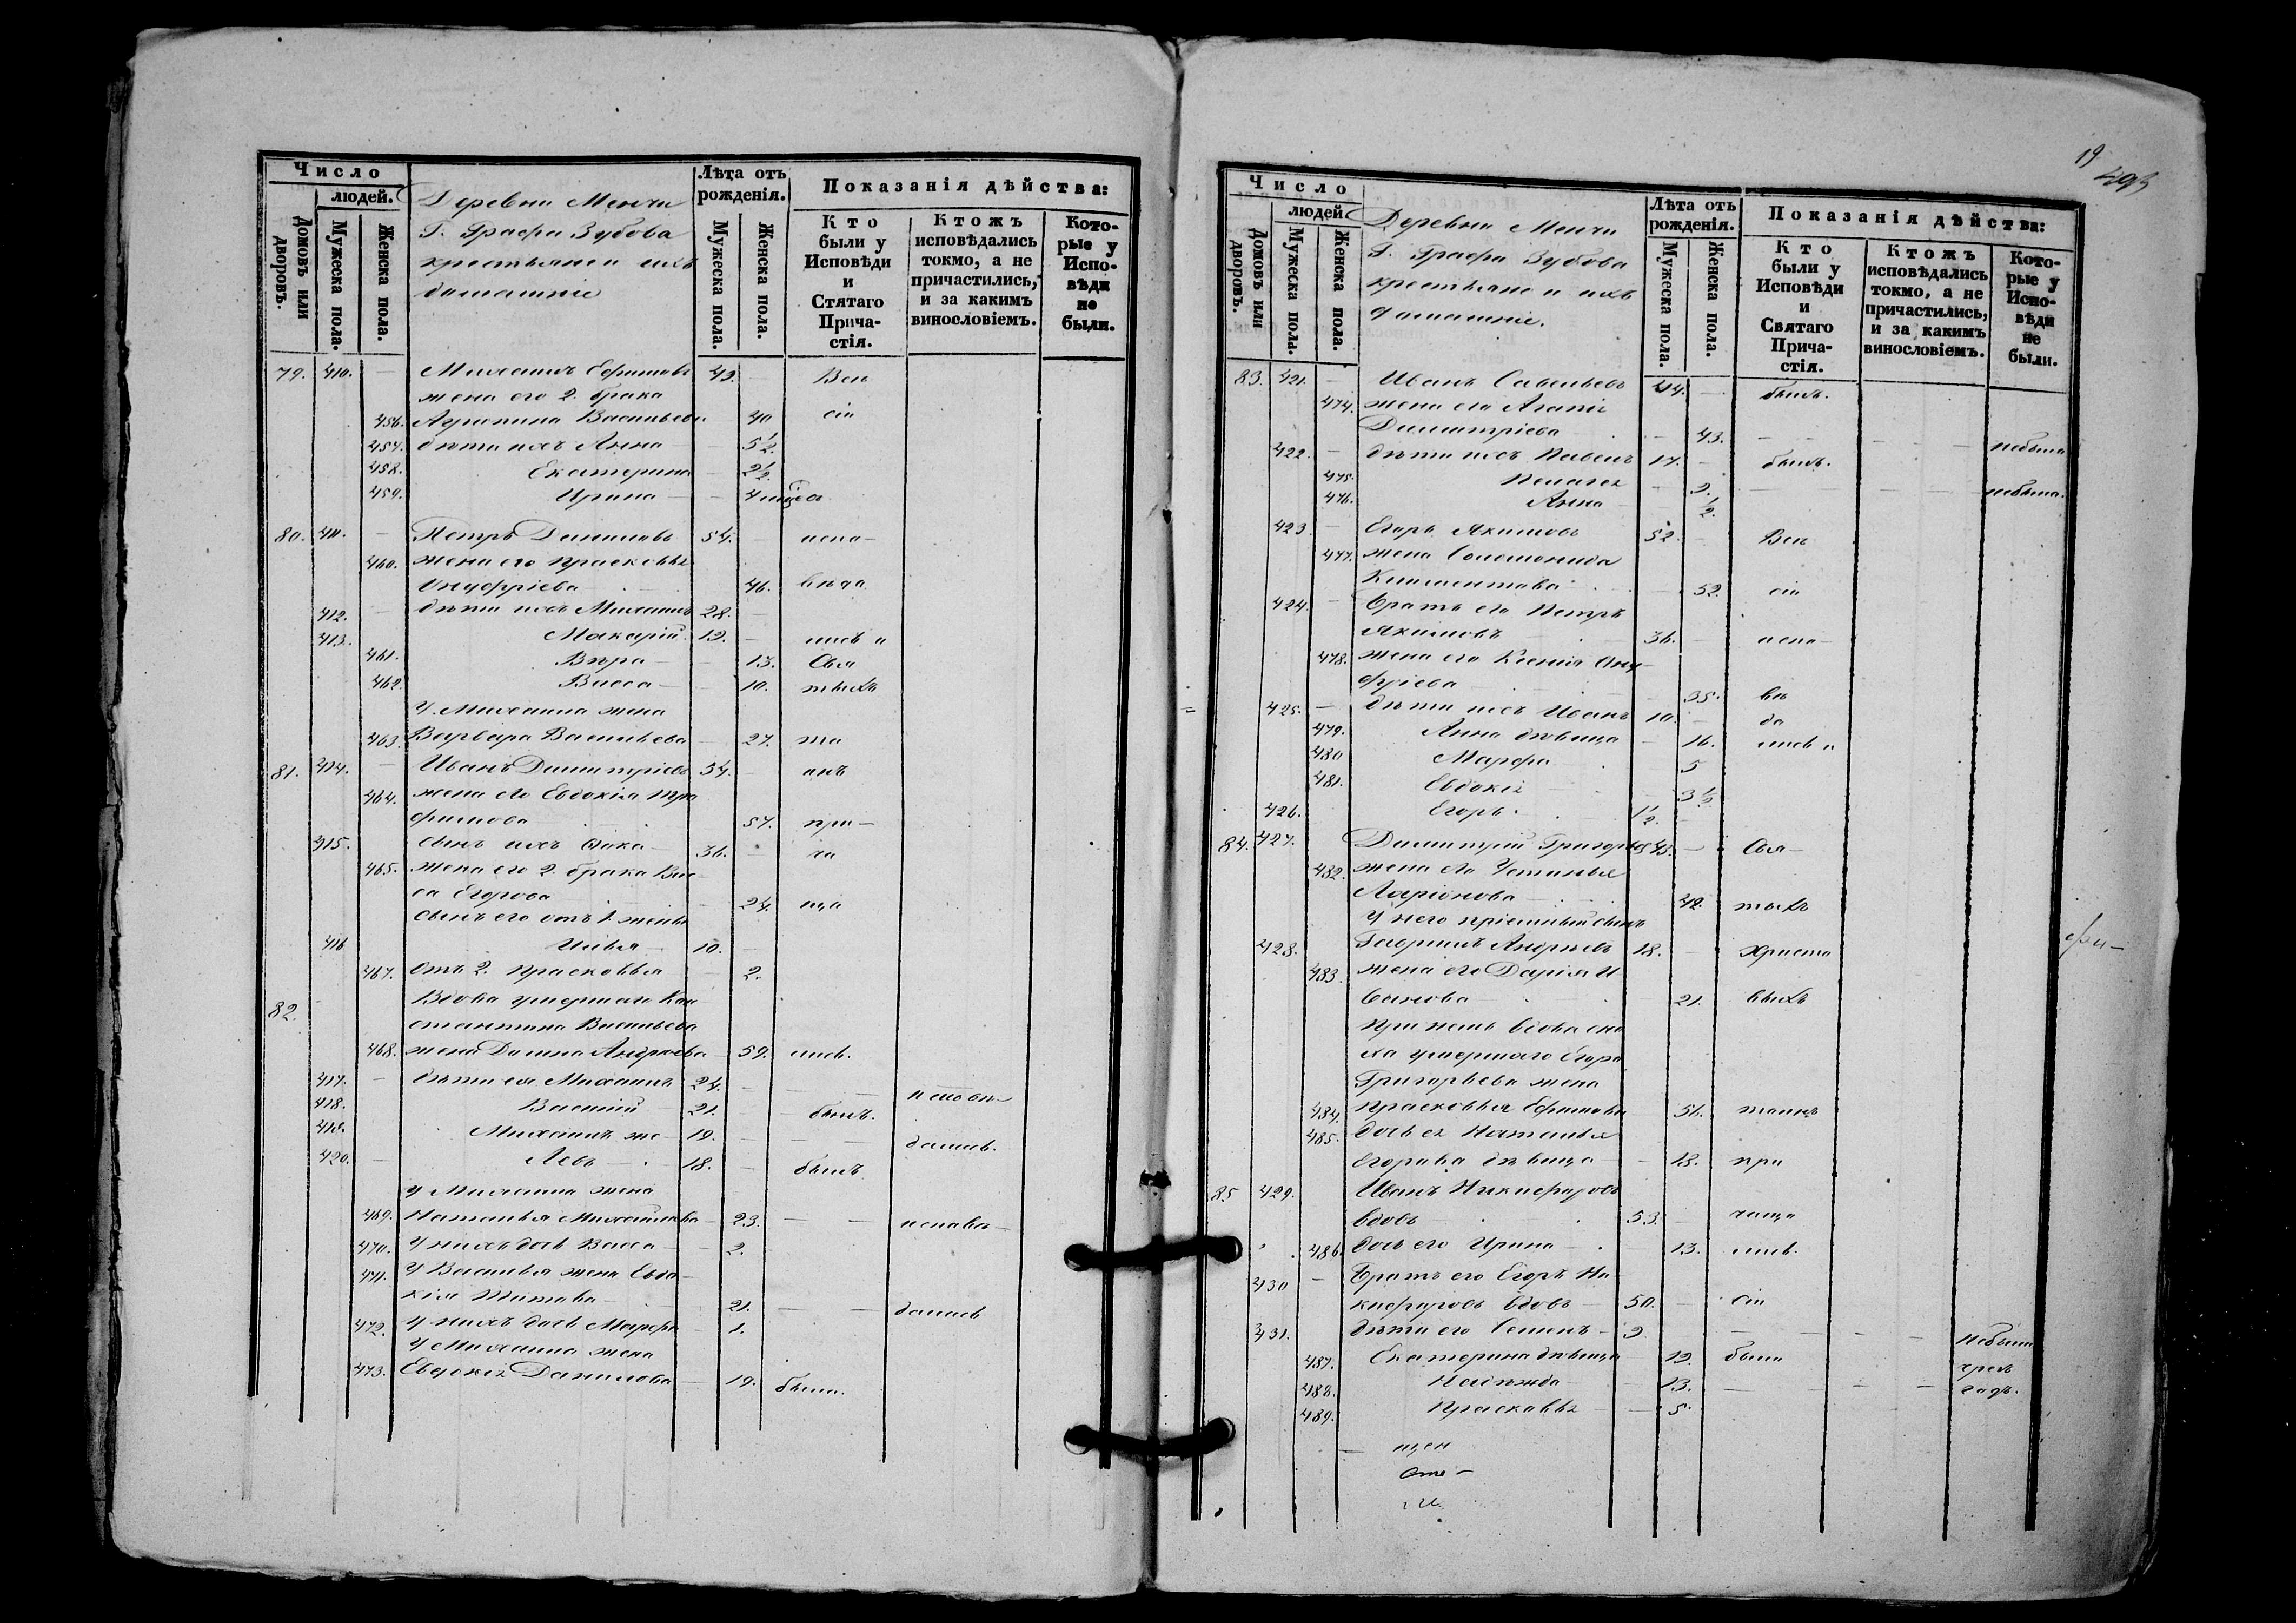 Число
людей.
Домовъ или дворовъ.
Мужеска пола.
Женска пола.
Деревни Мончи
Г. Графа Зубова
крестьяне и ихъ
домашніе
Лѣта отъ рожденія.
Мужеска пола.
Женска пола.
Показанія дѣйства:
Кто были у Исповѣди и Стятаго Прича-стія.
Ктожъ исповѣдались токмо, а не причастились, и за какимъ винословіемъ.
Кото-рые у Испо-вѣди не были.
79. 410. — Михаилъ Ефимовъ 43. — Всѣ
жена его 2. брака
456. Агрипина Васильева 40 сіи
457. дѣти ихъ Анна — 5½
458. Екатерина — 2½
459. Ирина — 4 мѣсяца
80. 411. — Петръ Даниловъ 54. — испо-
460. жена его Прасковья
Онуфріева 46. вѣда
412. — дѣти ихъ Михаилъ 28. —
413. Макарій 12. — лись и
461. Вѣра — 13. Свя
462. Васса — 10. тыхъ
У Михаила жена
463. Варвара Васильева — 27. та
81. 414. — Иванъ Димитріевъ 54. — инъ
464. жена его Евдокія Тро
фимова 57. при-
415. сынъ ихъ Фока — 36. — ча
465. жена его 2. брака Вас
са Егорова 24. ща
сынъ его отъ 1. жены
416 Илья — 10. —
467. Отъ 2. Прасковья — 2.
82. Вдова умершаго Кон
стантина Васильева
468. жена Домна Андреева — 59. лись.
417. — дѣти ея Михаилъ 24. — исповѣ-
418. Василій — 21. — былъ.
419. Михаилъ же — 19. — дался.
420. — Левъ — 18. — былъ
У Михаила жена
469. Наталья Михайлова — 23. — исповѣ-
470. У нихъ дочь Васса — 2.
471. У Василья жена Евдо-
кія Титова 21. — далась
472. У нихъ дочь Марфа — 1.
У Михаила жена
473. Евдокія Данилова — 19. была.
19
Число
людей
Домовъ или дворовъ.
Мужеска пола.
Женска пола.
Деревни Мончи
Г. Графа Зубова
крестьяне и ихъ
домашніе.
Лѣта отъ рожденія.
Мужеска пола.
Женска пола.
Показанія дѣйства:
Кто были у Исповѣди и Святаго Прича-стія.
Ктожъ исповѣдались токмо, а не причастились, и за какимъ винословіемъ.
Кото-рые у Испо-вѣди не были.
83. 421. — Иванъ Савельевъ 44. — былъ.
474. жена его Агапія
Димитріева — 43. — небыла
422. — дѣти ихъ Павелъ 17. — былъ.
475. Пелагея — 9. — небыла.
476. Анна — ½.
423 — Егоръ Якимовъ 52 — Всѣ
477. жена Соломонида
Климентова — 52. сіи
424. — братъ его Петръ
Якимовъ 36. — испо-
478. жена его Ксенія Ону-
фріева — 35. вѣ
425. — дѣти ихъ Иванъ 10. — да
479. Анна дѣвица — 16. лись и
480 Марфа 5
481. Евдокія — 3½
426. Егоръ 1½
84. 427. Димитрій Григорьевъ 43. — Свя-
482. жена его Устинья
Ларіонова 42. тыхъ
У него пріемный сынъ
428. Гавріилъ Андреевъ 18. — Христо
483. жена его Дарія И
ванова 21. выхъ
При немъ вдова сно
ха умершаго Егора
Григорьева жена
484. Прасковья Ефимова 51. таинъ
485. дочь ея Наталья
Егорова дѣвица — 18. при
85 429. Иванъ Никифоровъ
вдовъ 53. — чаща
486. дочь его Ирина — 13. лись.
430 — братъ его Егоръ Ни
кифоровъ вдовъ — 50. — сіи
431. дѣти его Семенъ — 9. — Небыли
487. Екатерина дѣвица 19. были
488. Надежда 13.
489. Прасковья — 5.